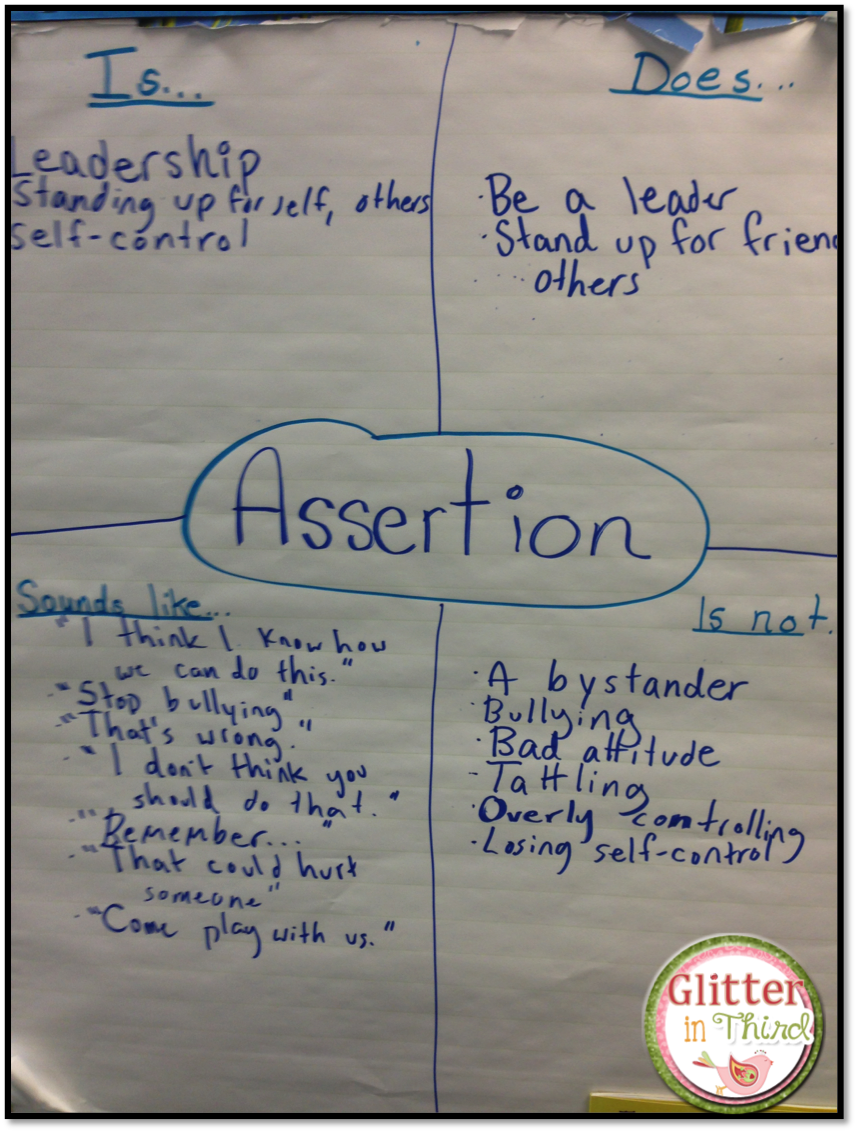 Is...
Leadership
Standing up for self, others
self-control
Does...
·Be a leader
·Stand up for frien
others
Assertion
Sounds like...
"I think I know how
we can do this."
-"Stop bullying"
-"That's wrong."
-"I don't think you
should do that."
-"Remember..."
-"That could hurt
someone"
-"Come play with us."
Is not.
·A bystander
·Bullying
·Bad attitude
-Tattling
·Overly controlling
·Losing self-control
Glitter
in Third